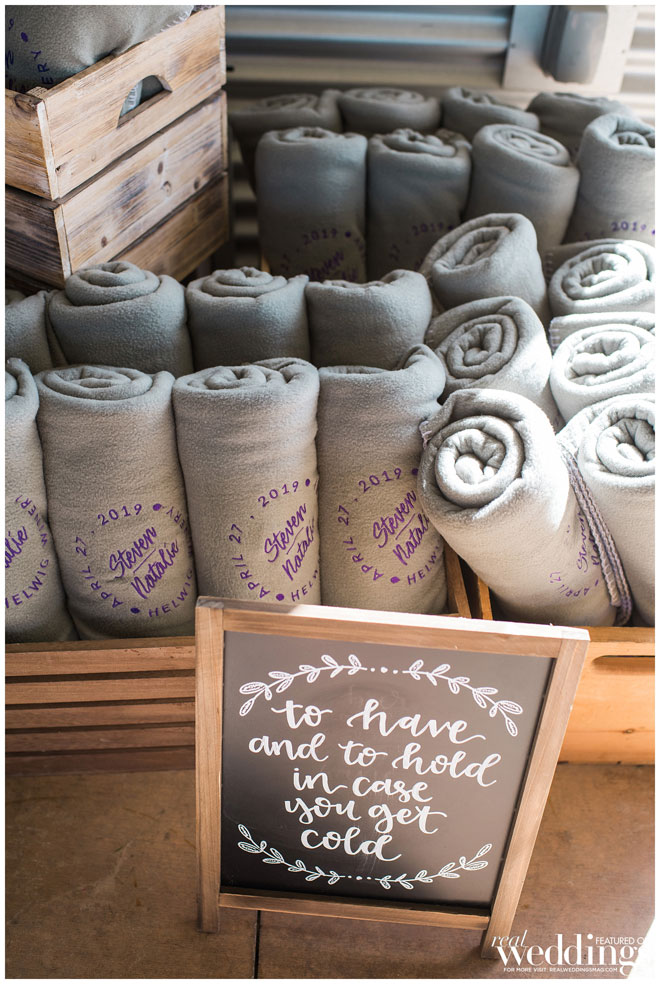 NERY
2019
Steven
2019
APRIL 27, 2019
Steven
Natalie
HELWIG
APRIL 27, 2019
Steven
Natalie
APRIL 27, 2019
Steven
Natalie
HELWIG WINERY
to have
and to hold
in case
you get
cold
real weddings
FEATURED O
FOR MORE VISIT: REALWEDDINGSMAG.COM